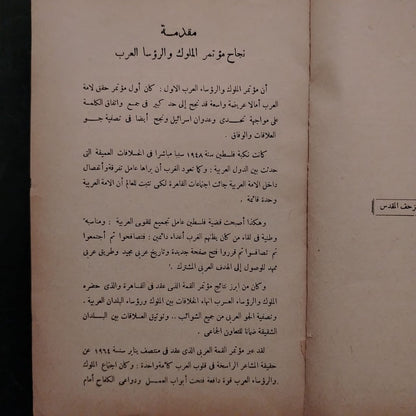 مقدمـــة
نجاح مؤتمر الملوك والرؤسا العرب
أن مؤتمر الملوك والرؤساء العرب الاول : كان أول مؤتمر حقق لامة
العرب أمالا عريضة واسعة قد نجح إلى حد كبير فى جمع واتفاق الكلمة
على مواجهة تحدى وعدوان اسرائيل ونجح أيضا فى تصفية جــو
العلاقات والوفاق .
كانت نكبة فلسطين سنة ١٩٤٨ سببا مباشرا فى الخلافات العميقة التى
حدثت بين الدول العربية : وكما تعود الغرب أن يراها عامل تفرقة وأنفصال
داخل الامة العربية جائت اجتماعات القاهرة لكى تثبت للعالم أن الامة العربية
وحدة قائمة .
وهكذا أصبحت قضية فلسطين عامل تجميع للقوى العربية : ومناسبة
وطنية فى لقاء من كان يظنهم الغرب أعداء دائمين : فتصافحوا ثم أجتمعوا
ثم تصافوا ثم قرروا فتح صفحة جديدة وتاريخ عربى مجيد وطريق عربى
ممهد للوصول إلى الهدف العربى المشترك .
وكان من ابرز نتايج مؤتمر القمة الذى عقد فى القاهرة والذى حضره
الملوك والرؤساء العرب انهاء الخلافات بين الملوك ورؤساء البلدان العربية .
وتصفية الجو العربى من جميع الشوائب .. وتوثيق العلاقات بين البــلدان
الشقيقة ضمانا للتعاون الجماعى .
لقد عبر مؤتمر القمة العربى الذى عقد فى منتصف يناير سنة ١٩٦٤ عن
حقيقة المشاعر الراسخة فى قلوب العرب كأمة واحدة : وكان اجتماع الملوك
والرؤساء العرب قوة دافعة فتحت أبواب العمــل ودواعى الكفاح أمام
زحف المقدس